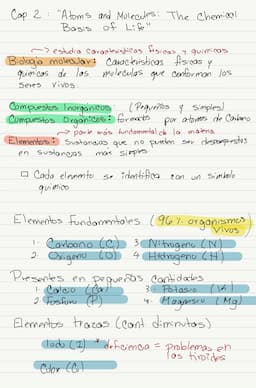 Cap 2 : "Atoms and Molecules: The Chemical
Basis of Life"
→ estudia características físicas y químicas
Biología molecular: Características físicas y
químicas de las moléculas que conforman los
seres vivos.
Compuestos Inorgánicos (Pequeños y simples)
Compuestos Orgánicos: formados por átomos de Carbono
→ parte más fundamental de la materia
Elementos: Sustancias que no pueden ser descompuestas
en sustancias más simples.
□ Cada elemento se identifica con un símbolo
químico
Elementos Fundamentales (96% organismos
vivos)
1. Carbono (C) 3. Nitrógeno (N)
2. Oxígeno (O) 4. Hidrógeno (H)
Presentes en pequeñas cantidades
1. Calcio (Ca) 3. Potasio (K)
2. Fósforo (P) 4. Magnesio (Mg)
Elementos trazas (cant diminutas)
Iodo (I) * deficiencia = problemas en
las tiroides